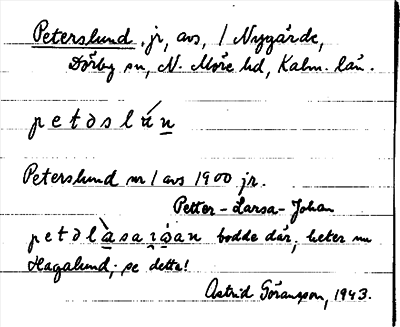 Peterslund, jr, avs, / Nygärde,
Dörby sn, N. Möre hd, Kalm. län.
petəslún
Peterslund nr 1 avs 1900 jr.
Petter-Larsa-Johan
petəlàsaıòan bodde där, heter nu
Hagalund; se detta!
Astrid Göransson, 1943.